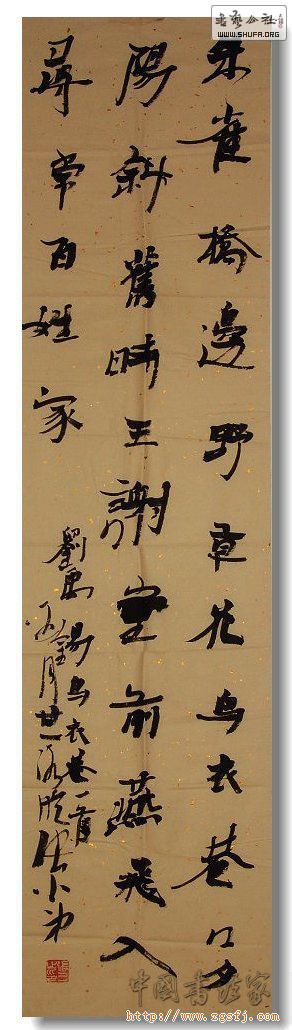 朱雀橋邊野草花烏衣巷口夕
陽斜舊時王謝堂前燕飛入
尋常百姓家
劉禹錫烏衣巷一首
月廿一
书艺公社
WWW.SHUFA.ORG
中国书法家
www.zgsfj.com